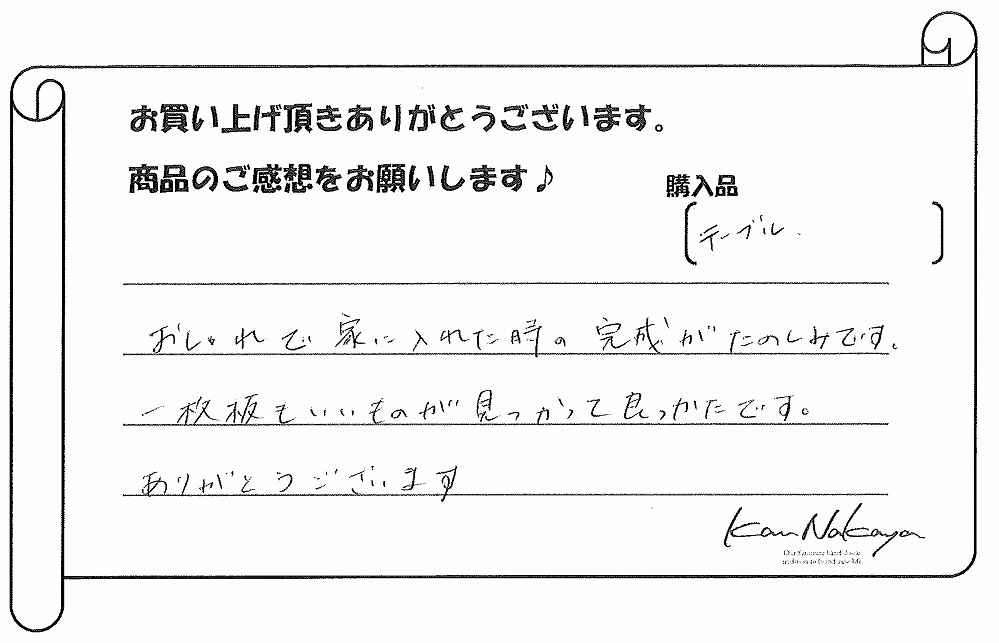 お買い上げ頂きありがとうございます。
商品のご感想をお願いします♪
購入品
テーブル.
おしゃれで家に入れた時の完成がたのしみです.
一枚板もいいものが見つかって良っかたです。
ありがとうございます
Kan Nakaya